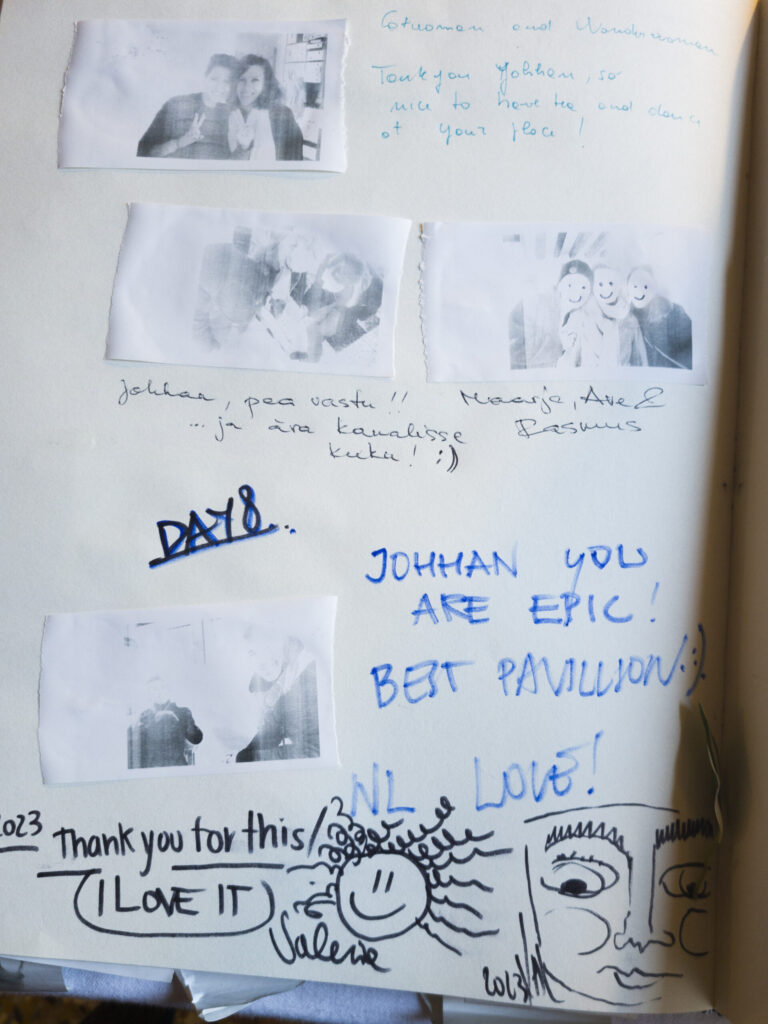 Catwoman and Wonderwoman
Tankyou Johhan, so
nice to have tea and dance
at your place!
Johhan, pea vastu!!
... ja ära kanalisse
kuku! :)
Maarja, Ave &
Rasmus
DAY 8..
JOHHAN YOU
ARE EPIC!
BEST PAVILLION :).
NL LOVE!
2023
Thank you for this/
I LOVE IT
Valeria
2023